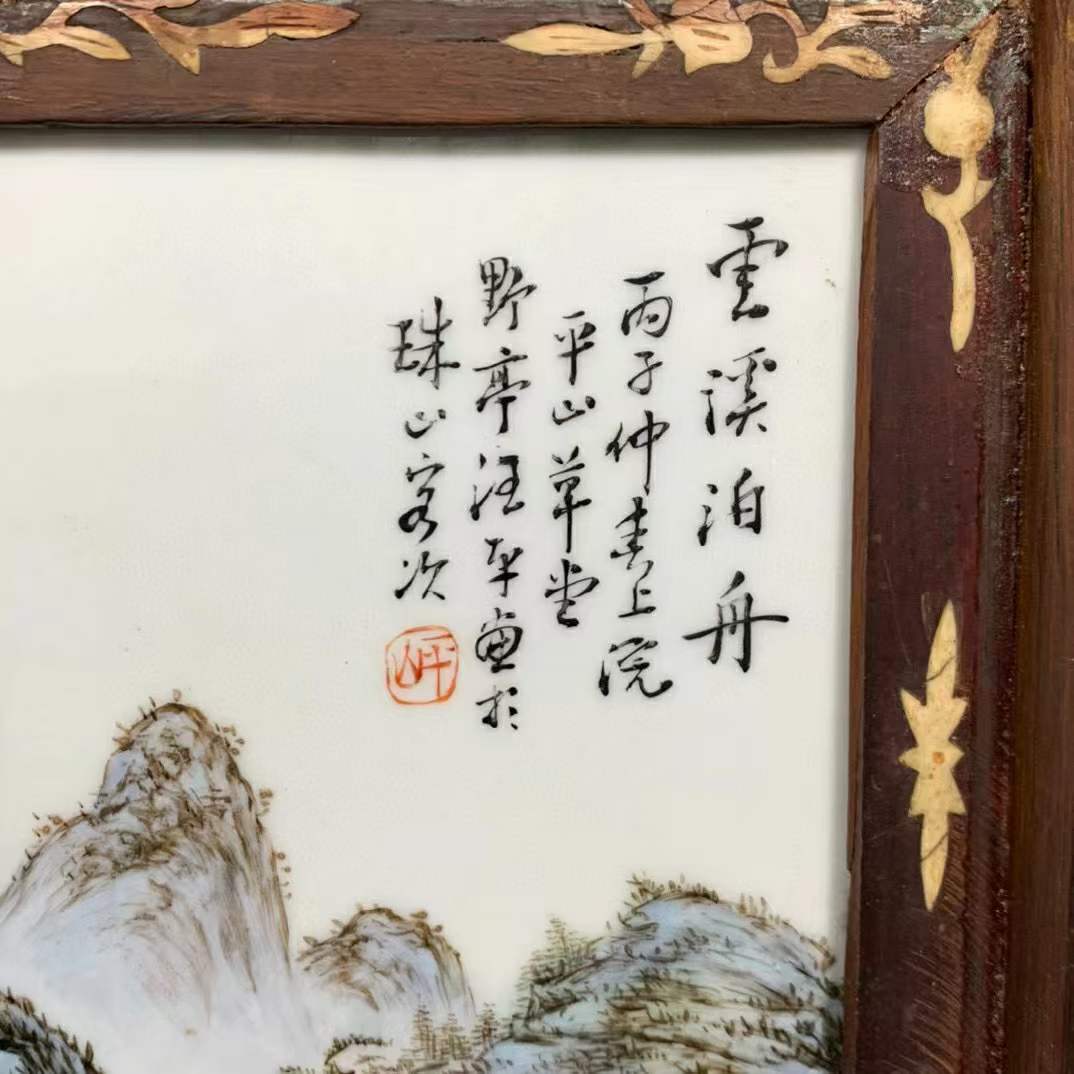 雲溪泊舟
丙子仲春上浣
平山草堂
野亭汪平画於
珠山客次
平山